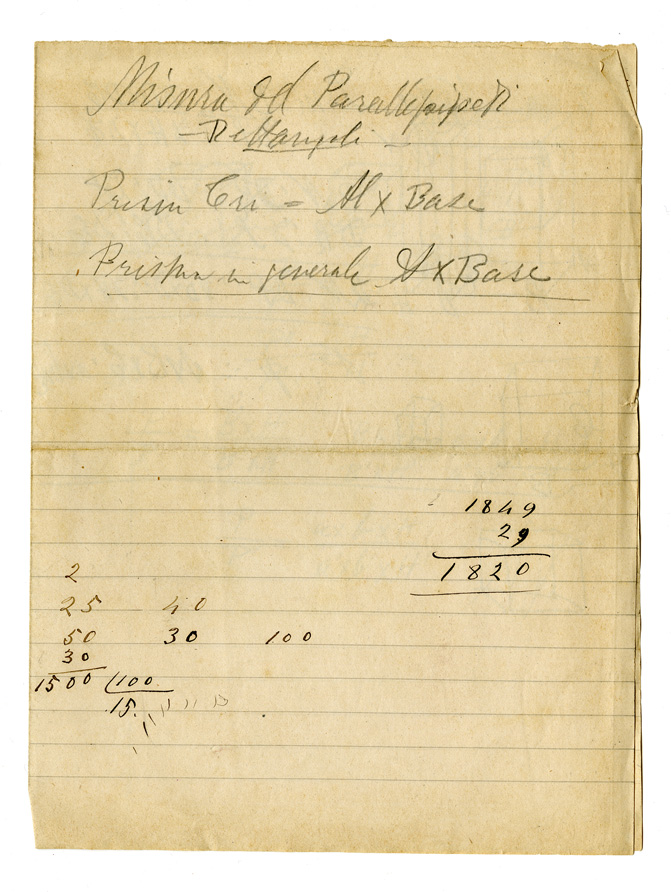 Misura del Parallepipedi
- Rettangoli -
Prism Tri = Al x Base
Prisma in generale A x Base
1849
29
1820
2
25 40
50 30 100
30
1500 100
15.